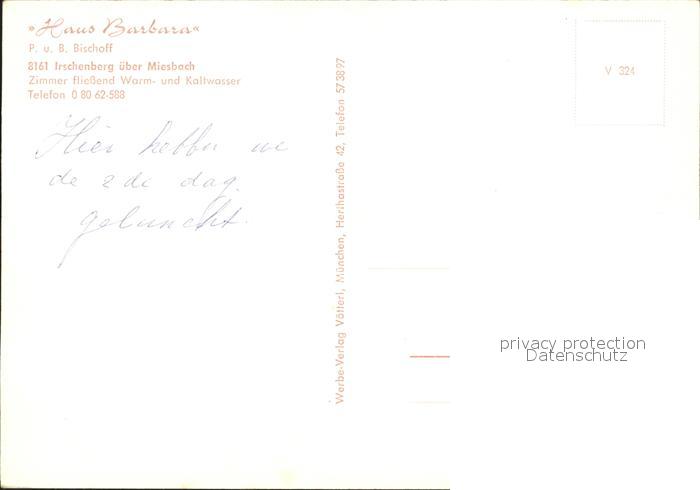 »Haus Barbara«
P. u. B. Bischoff
8161 Irschenberg über Miesbach
Zimmer fließend Warm- und Kaltwasser
Telefon 0 80 62-588
Hier hebben we
de 2de dag
geluncht.
Werbe-Verlag Vötterl, München, Herthastraße 42, Telefon 57 38 97
V 324
privacy protection
Datenschutz